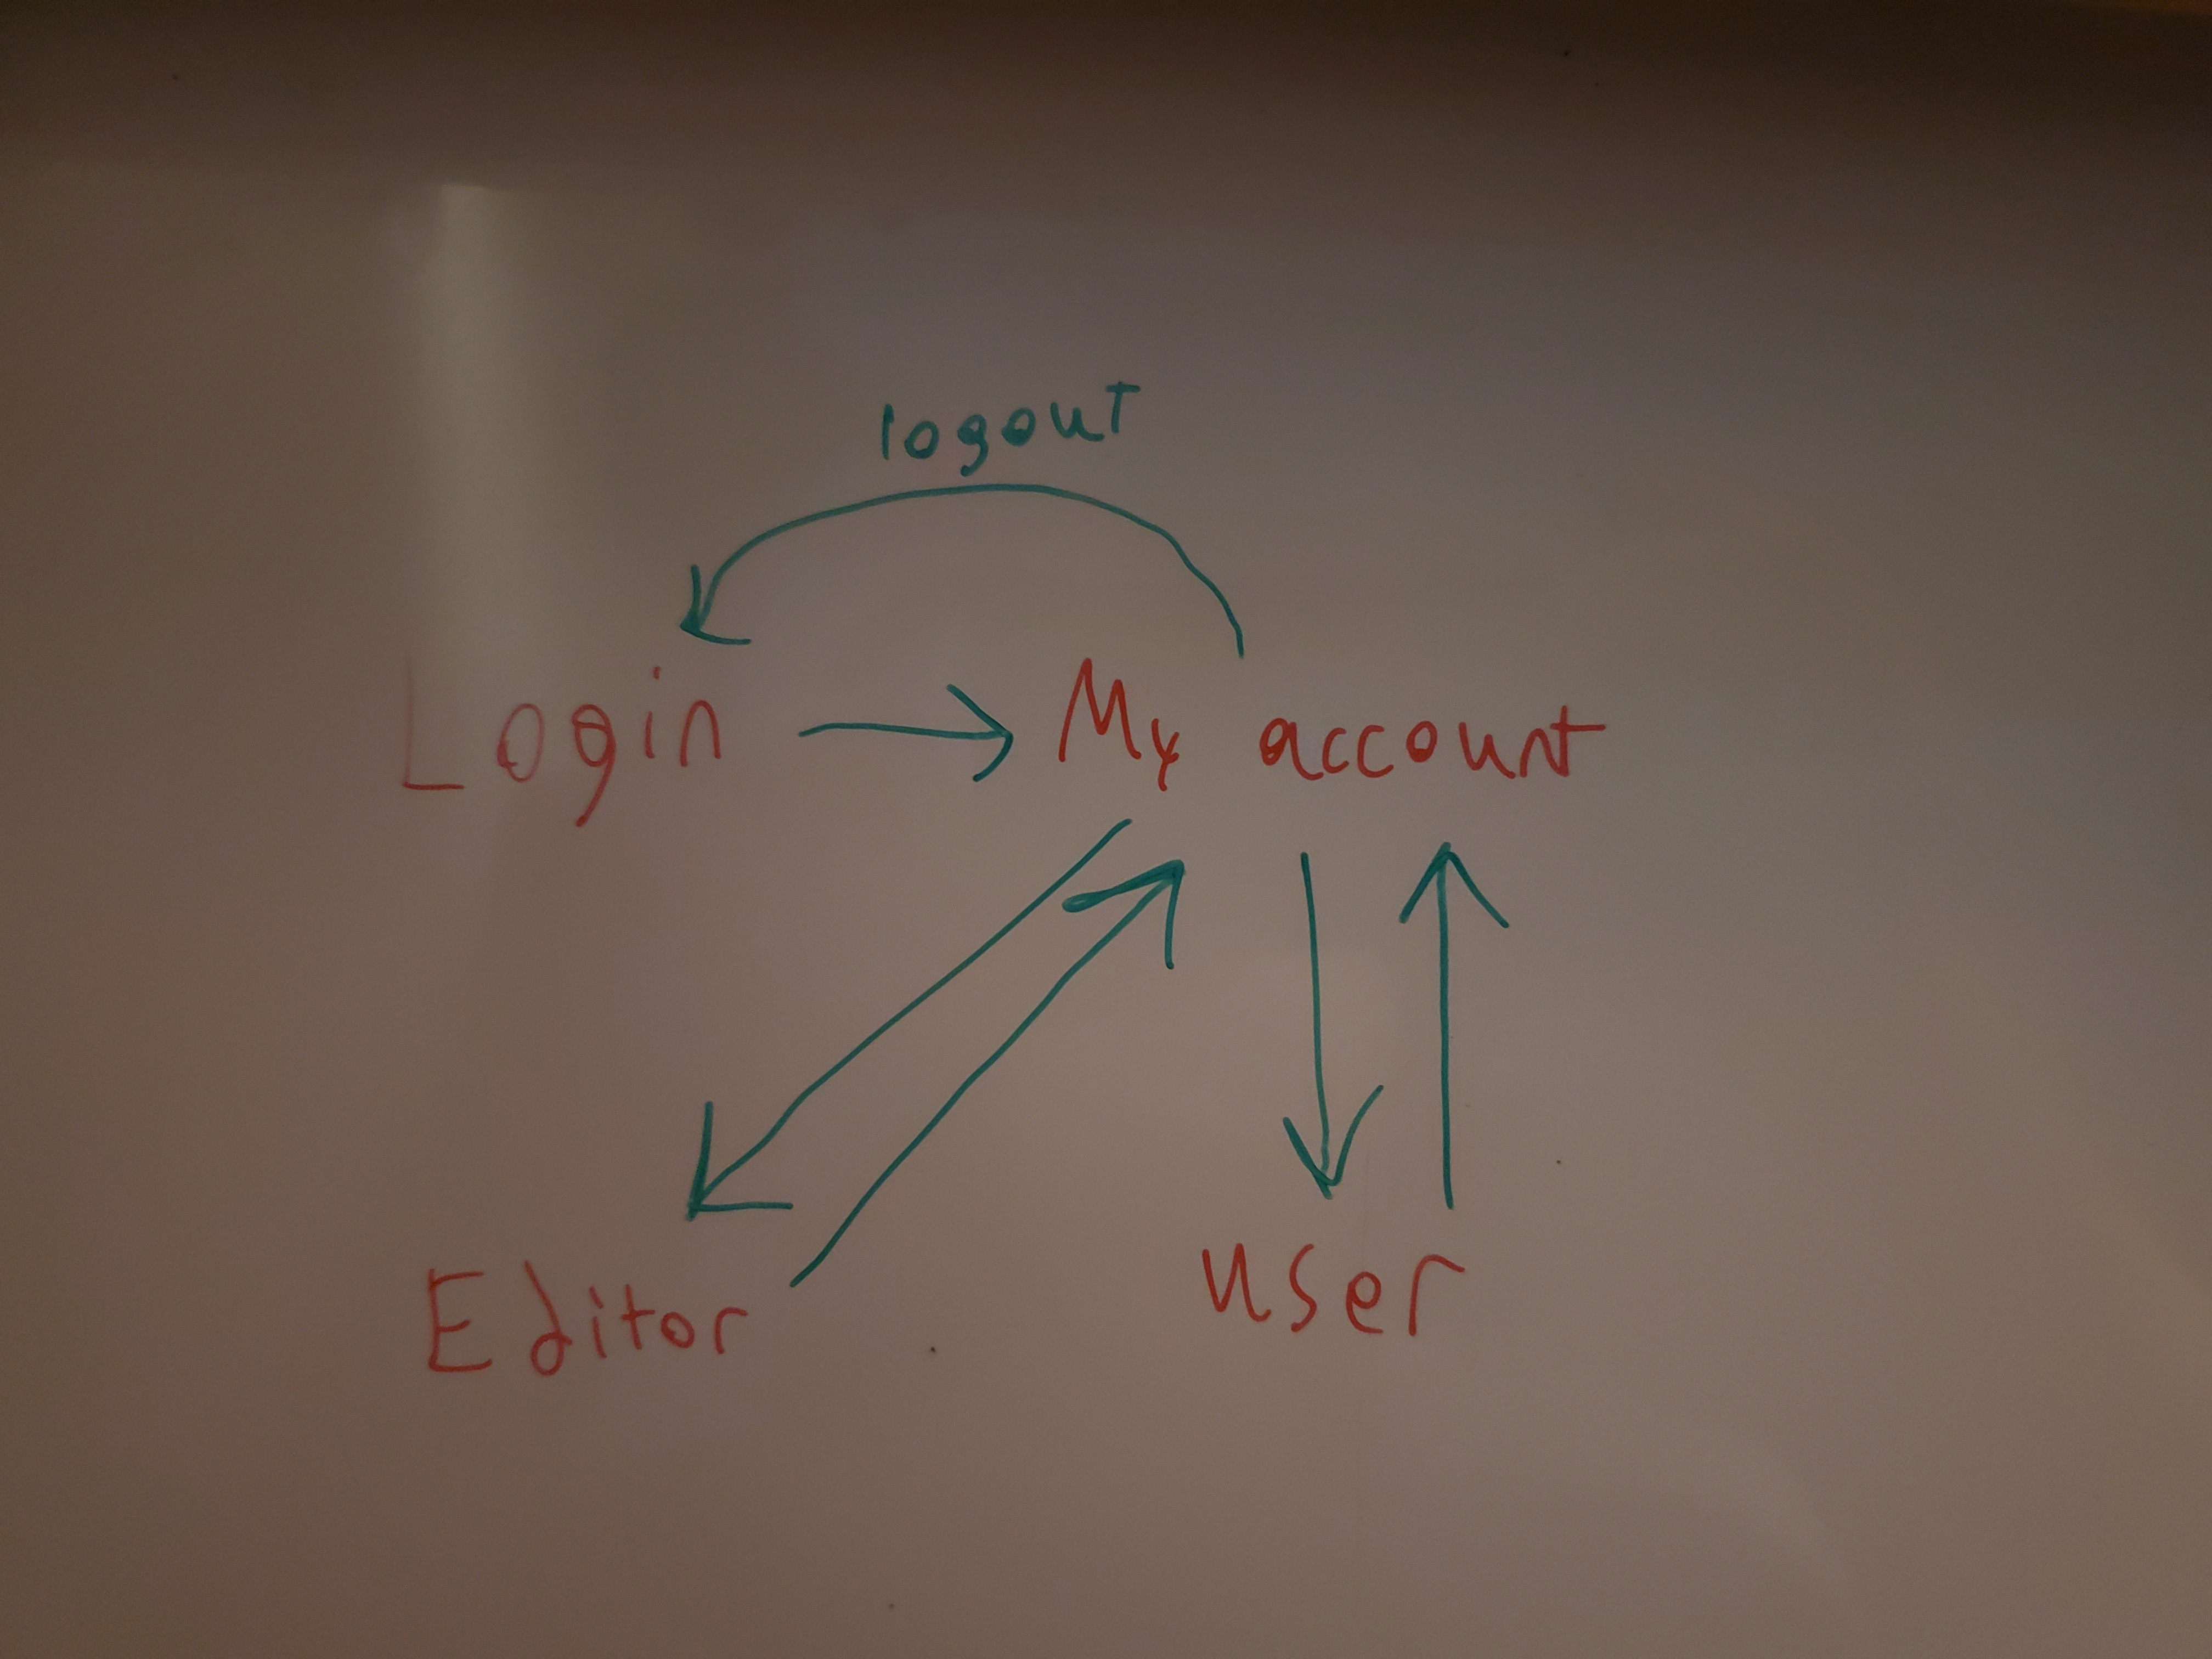 logout
Login
My account
Editor
user